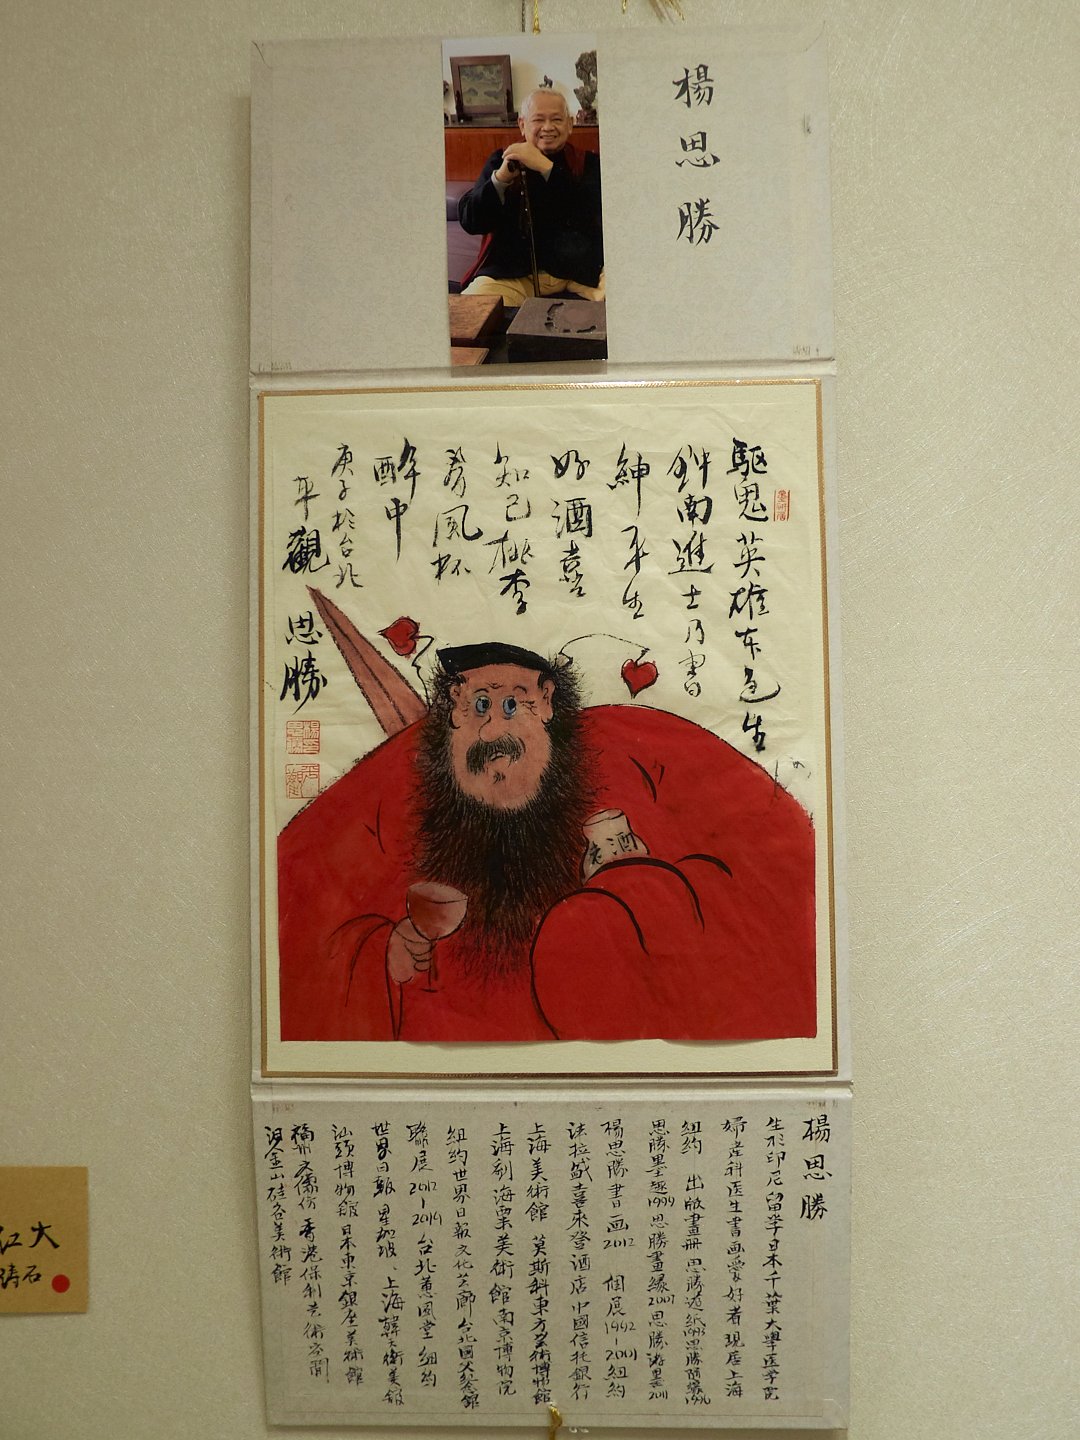 楊思勝
驅鬼英雄本色生
鍾南進士乃書
紳平生
好酒喜
知己桃李
春風杯
醉中
庚子於台北
平觀
思勝
老酒
楊思勝
生於印尼留学日本千葉大學医学院
婦產科医生書画愛好者現居上海
紐約 出版畫册思勝遊紙
思勝墨趣1999思勝畫緣2007思勝游墨2011
楊思勝書画2012 個展1992-2001紐約
法拉盛喜來登酒店中國信托銀行
上海美術館 莫斯科東方藝術博物館
上海刘海粟美術館南京博物院
紐約世界日報文化艺廊台北國父紀念館
聯展2012-2019台北蕙風堂 紐約
世界日報 星加坡、上海韓天衡美館
汕頭博物館日本東京銀座美術館
香港保利芸術空間
旧金山硅谷美術館
大
红
石